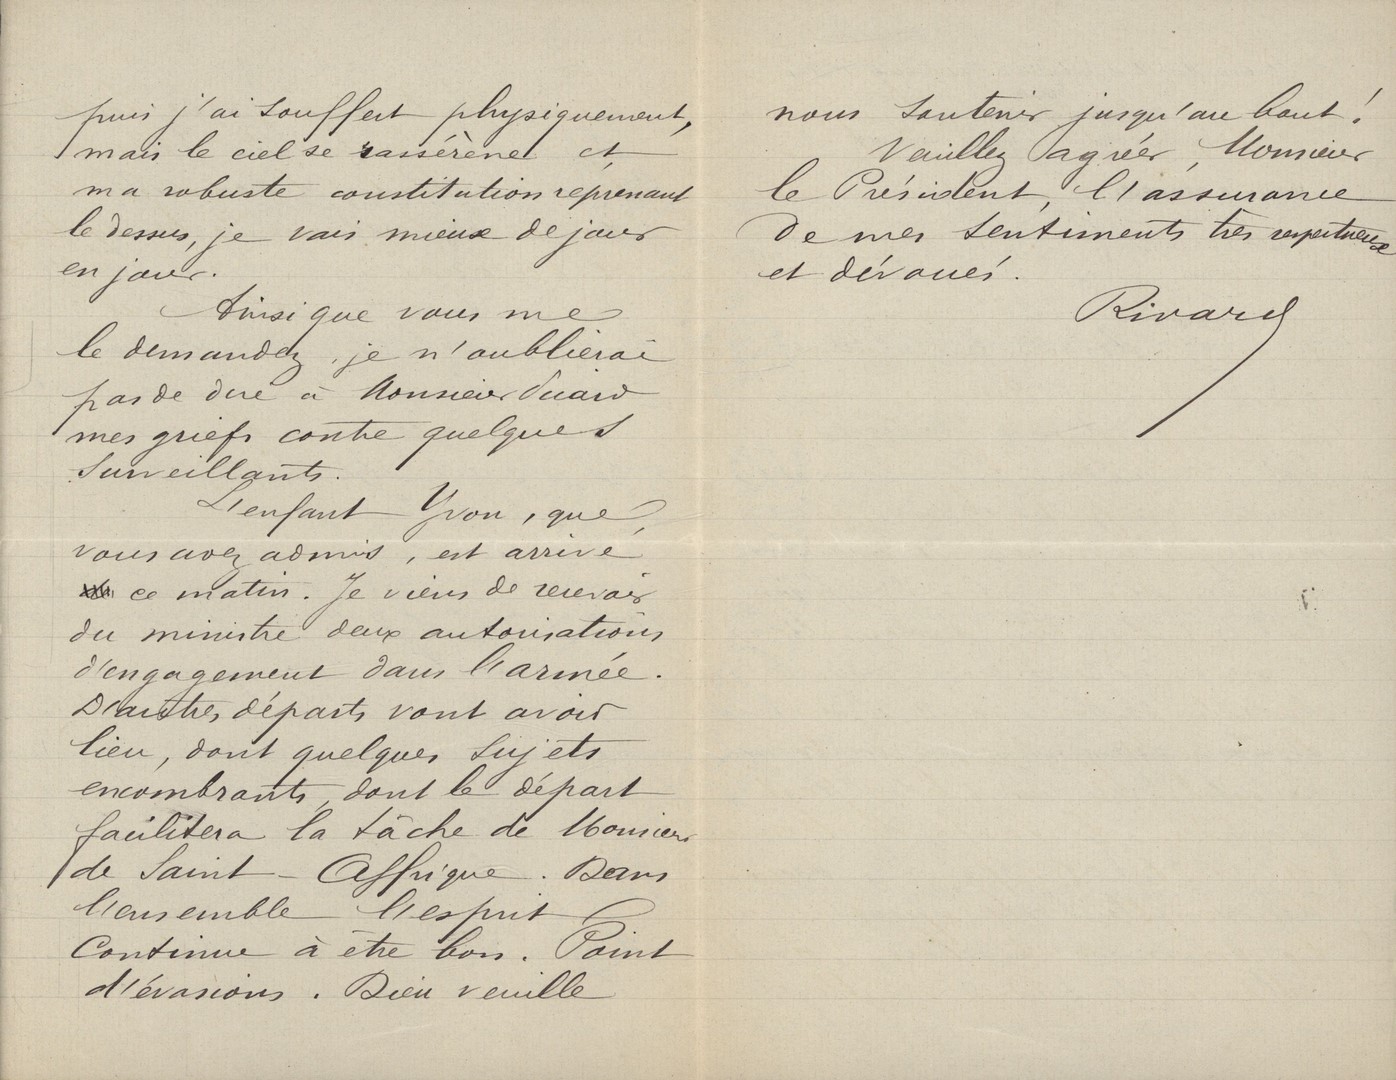 puis j'ai souffert physiquement,
mais le ciel se rassérène et
ma robuste constitution reprenant
le dessus, je vais mieux de jour
en jour.
Ainsi que vous me
le demandez, je n'oublierai
pas de dire à Monsieur
mes griefs contre quelques
surveillants.
L'enfant Yvon, que
vous avez admis, est arrivé
ce matin. Je viens de recevoir
du ministre deux autorisations
d'engagement dans l'armée.
D'autres départs vont avoir
lieu, dont quelques sujets
encombrants, dont le départ
facilitera la tâche de Monsieur
de Saint-Affrique. Dans
l'ensemble l'esprit
continue à être bon. Point
d'évasions. Dieu veuille
nous soutenir jusqu'au bout!
Veuillez agréer, Monsieur
le Président, l'assurance
de mes sentiments très respectueux
et dévoués.
Rivard